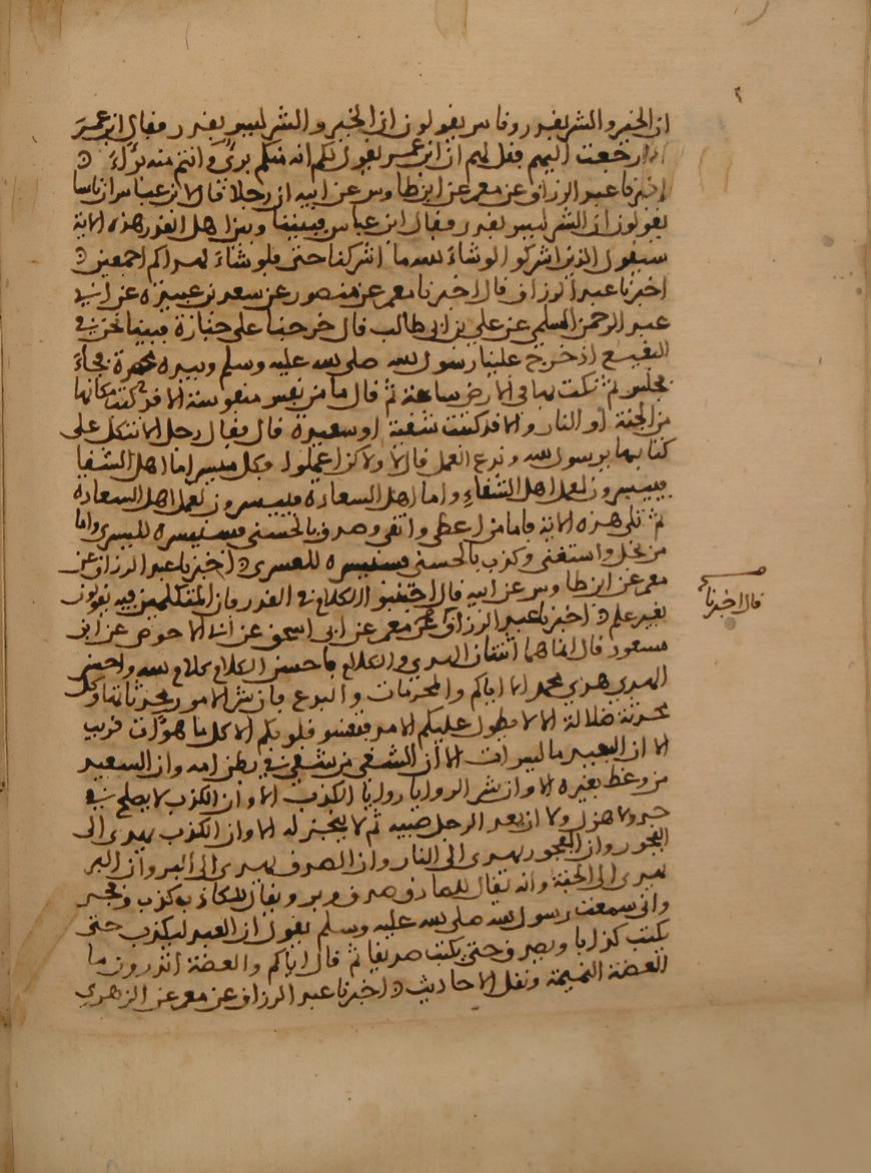 ان الخير والشر بقدر وناس يقولون ان الخير والشر ليس بقدر فقال ابن عمر
اذا رجعت اليهم فقل لهم ان ابن عمر يقول لكم انه منكم برئ وانتم منه برآء
اخبرنا عبد الرزاق عن معمر عن ابن طاوس عن ابيه ان رجلا قال لابن عباس ان ناسا
يقولون ان الشر ليس بقدر فقال ابن عباس فبيننا وبين اهل القدر هذه الاية
سيقول الذين اشركوا لو شاء الله ما اشركنا حتى فلو شاء لهداكم اجمعين
اخبرنا عبد الرزاق قال اخبرنا معمر عن منصور عن سعد بن عبيدة عن ابي
عبد الرحمن السلمي عن علي بن ابي طالب قال خرجنا على جنازة فبينا نحن في
البقيع اذ خرج علينا رسول الله صلى الله عليه وسلم وبيده مخصرة فجاء
فجلس ثم نكت بها في الارض ساعة ثم قال ما من نفس منفوسة الا قد كتب مكانها
من الجنة او النار والا قد كتبت شقية او سعيدة قال فقال رجل الا نتكل على
كتابها يرسول الله وندع العمل قال لا ولاكن اعملوا فكل ميسر اما اهل الشقا
فييسرون لعمل اهل الشقاء واما اهل السعادة فييسرون لعمل اهل السعادة
ثم تلى هذه الاية فاما من اعطى واتقى وصدق بالحسنى فسنيسره لليسرى واما
من بخل واستغنى وكذب بالحسنى فسنيسره للعسرى اخبرنا عبد الرزاق عن
معمر عن ابن طاوس عن ابيه قال اجتنبوا الكلام في القدر فان المتكلمين فيه يقولون
بغير علم اخبرنا عبد الرزاق عن معمر عن ابي اسحق عن ابي الاحوص عن ابن
قال اخبرنا
مسعود قال انما هما اثنتان الهدي والكلام فاحسن الكلام كلام الله واحسن
الهدي هدي محمد الا اياكم والمحرمات والبدع فان شر الامور محدثاتها وكل
محدثة ضلالة الا لا يطول عليكم الامد فتقسو قلوبكم الا كل ما هو آت قريب
الا ان البعيد ما ليس ات الا ان الشقي من شقي في بطن امه وان السعيد
من وعظ بغيره الا وان شر الروايا روايا الكذب الا وان الكذب لا يصلح في
جد ولا هزل ولا ان يعد الرجل صبيه ثم لا ينجز له الا وان الكذب يهدى الى
الفجور وان الفجور يهدى الى النار وان الصدق يهدى الى البر وان البر
يهدى الى الجنة وانه يقال للصادق صدق وبر ويقال للكاذب كذب وفجر
واني سمعت رسول الله صلى الله عليه وسلم يقول ان العبد ليكذب حتى
يكتب كذابا ويصدق حتى يكتب صديقا ثم قال اياكم والعضة اتدرون ما
العضة النميمة ونقل الاحاديث اخبرنا عبد الرزاق عن معمر عن الزهري